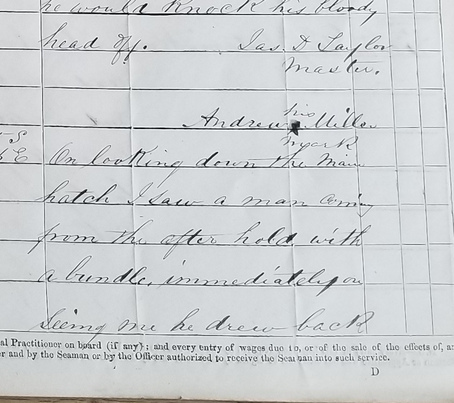 he would knock his bloody
head off. Jas. D Taylor
Master.
his
Andrew x Miller
mark
S
E On looking down the Main
hatch I saw a man coming
from the after hold with
a bundle, immediately on
seeing me he drew back
al Practitioner on board (if any); and every entry of wages due to, or of the sale of the effects of, a
r and by the Seaman or by the Officer authorized to receive the Seaman into such service.
D